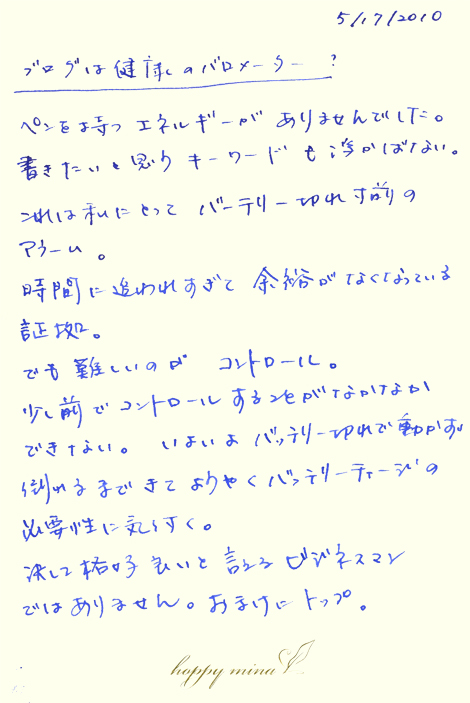 5/17/2010
ブログは健康のバロメーター?
ペンを持つエネルギーがありませんでした。
書きたいと思うキーワードも浮かばない。
これは私にとってバーテリー切れ寸前の
アラーム。
時間に追われすぎて余裕がなくなっている
証拠。
でも難しいのがコントロール。
少し前でコントロールすることがなかなか
できない。いよいよバッテリー切れで動かず
倒れるまできてようやくバッテリーチャージの
必要性に気づく。
決して格好良いと言えるビジネスマン
ではありません。おまけにトップ。
happy mina